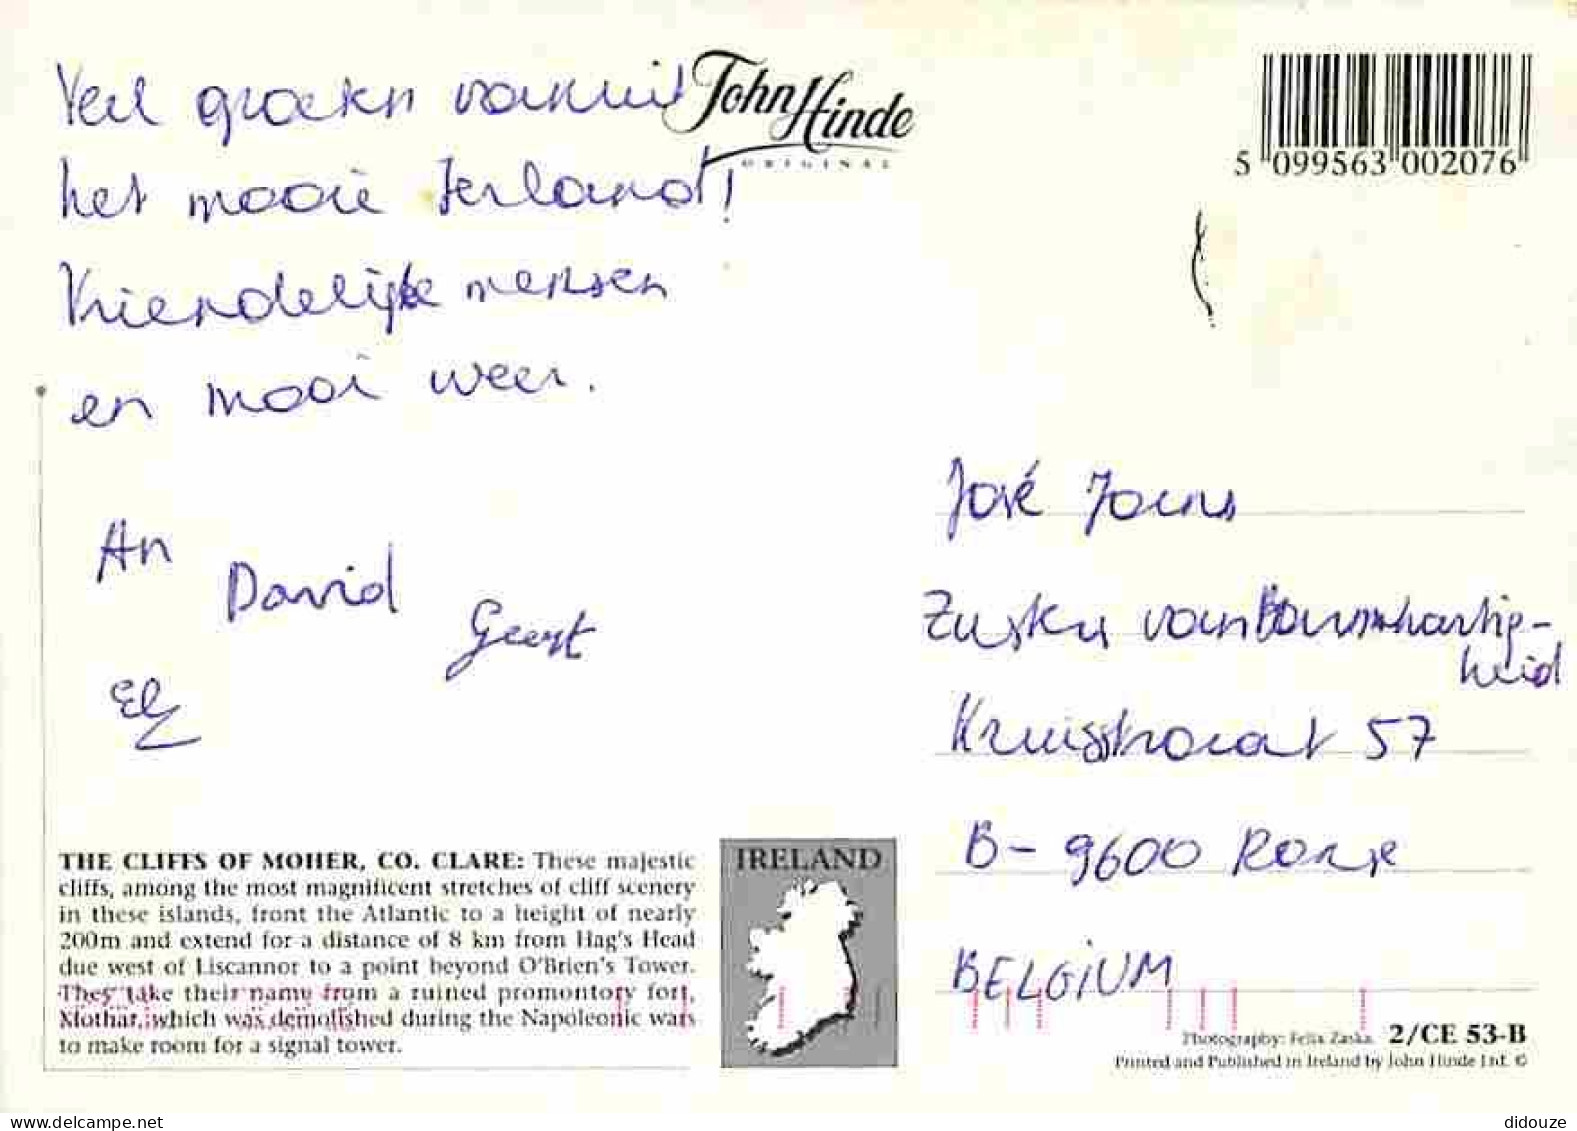 Veel groeten vanuit
het mooie Ierland!
Vriendelijke mensen
en mooi weer.
An
David
Geert
Els
John Hinde
ORIGINAL
5 099563 002076
José
Zusters van Barmhartig-
heid
Kruisstraat 57
B-9600 Ronse
BELGIUM
THE CLIFFS OF MOHER, CO. CLARE: These majestic
cliffs, among the most magnificent stretches of cliff scenery
in these islands, front the Atlantic to a height of nearly
200m and extend for a distance of 8 km from Hag's Head
due west of Liscannor to a point beyond O'Brien's Tower.
They take their name from a ruined promontory fort,
Mothar, which was demolished during the Napoleonic wars
to make room for a signal tower.
IRELAND
Photography: Felix Zaska. 2/CE 53-B
Printed and Published in Ireland by John Hinde Ltd. ©
delcampe.net
didouze